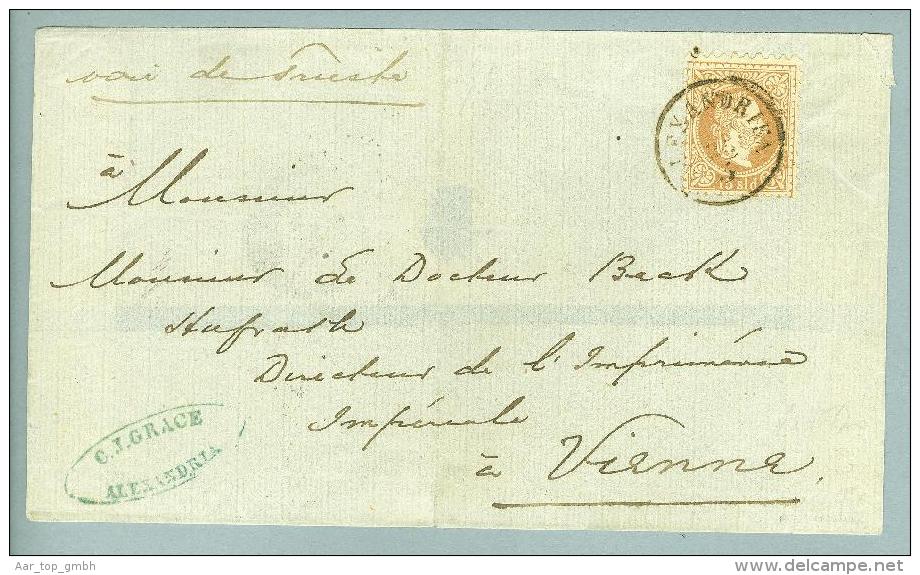 voie de Trieste
ALEXANDRIEN
à
Monsieur
Monsieur Le Docteur Beck
Hofrath
Directeur de l'Imprimérie
Impériale
à Vienne.
C.J.GRACE
ALEXANDRIA
Aar_top_gmbh
delcampe.net